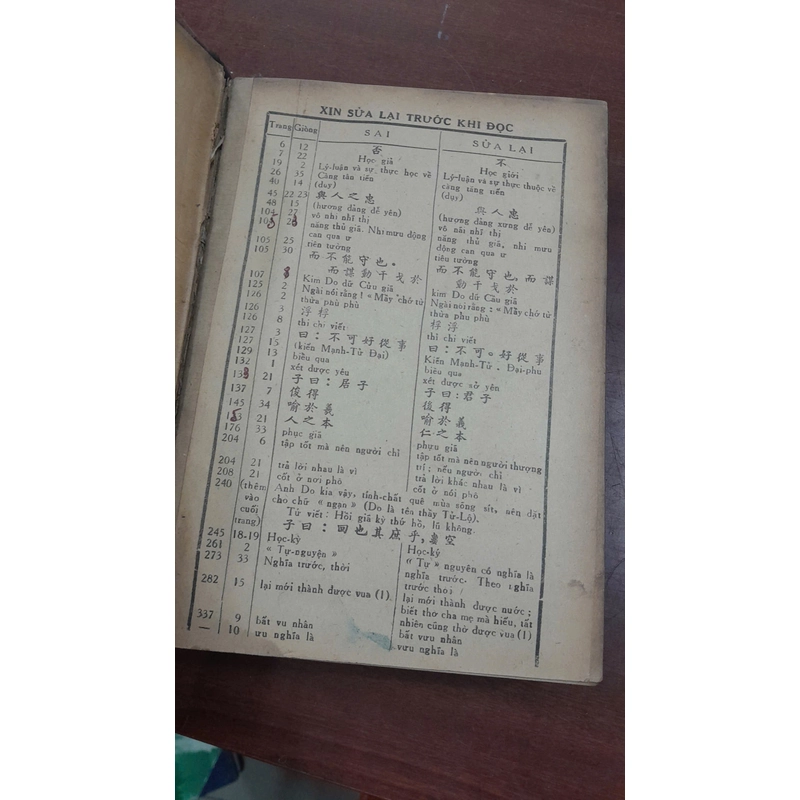 XIN SỬA LẠI TRƯỚC KHI ĐỌC
Trang Giòng SAI SỬA LẠI
6 12 否 不
7 22 Học giả Học giới
19 2 Lý-luận và sự thực học về Lý-luận và sự thực thuộc về
26 35 Càng tân tiến càng tăng tiến
40 14 (duy) (dụy)
45 22 23 與人之患 與人患
48 15 (hương đảng để yên) (hương đảng xưng để yên)
104 27 vô nhi nhĩ thị vô nãi nhĩ thị
năng thủ giã. Nhi mưu động năng thủ giã, nhi mưu
can qua ư động can qua ư
105 25
105 30 tiên tướng tiêu tướng
而不能守也。 而不能守也,而謀
而謀動干戈於 動干戈於
107 Kim Do dữ Cừu giã kim Do dữ Cầu giã
125 2 Ngài nói rằng! « Mầy chớ từ Ngài nói rằng : « Mầy chớ từ
126 2 thừa phù phù thừa phu phù
126 3 浮桴 桴浮
126 8 thì chi viết: thì chỉ viết
127 3 曰:不可好從事 曰:不可。好從事
127 15 (kiến Mạnh-Tử Đại) Kiến Mạnh-Tử . Đại-phu
129 13 biều qua biều qua
132 1 xét được yêu xét được sở yên
133 21 子曰:居子 子曰:君子
137 7 俊得 後得
145 34 喻於義 喻於義
21 人之本 仁之本
176 33 phục giả phựu giả
204 6 tập tốt mà nên người chỉ tập tốt mà nên người thượng
trí; nếu người chỉ
204 21 trả lời nhau là vì trả lời khác nhau là vì
208 21 cốt ở nơi phô cốt ở nói phô
240 (thêm vào cuối trang) Anh Do kia vậy, tính-chất quê mùa sống sít, nên đặt
cho chữ « ngạn » (Do là tên thầy Tử-Lộ).
Tử viết: Hồi giã kỳ thứ hồ, lũ không.
子曰:回也其庶乎,屢空
245 18-19 Học-kỳ Học-kỷ
261 2 « Tự-nguyện » « Tự » nguyên có nghĩa là
273 33 Nghĩa trước, thời nghĩa trước. Theo nghĩa
trước thoi
282 15 lại mới thành được vua (1). lại mới thành được nước;
biết thờ cha mẹ mà hiếu, tất
nhiên cũng thờ được vua (1)
337 9 bất vu nhân bất vưu nhân
— 10 ưu nghĩa là vưu nghĩa là